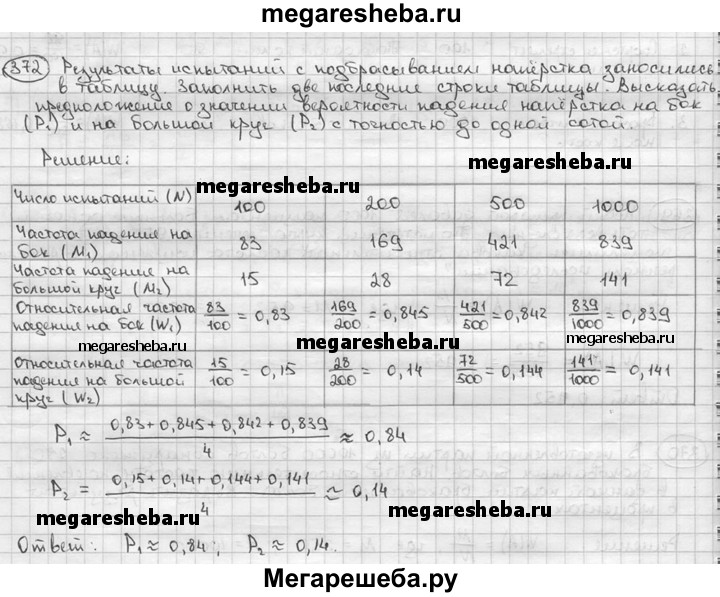 megaresheba.ru
372 Результаты испытаний с подбрасыванием напёрстка заносились
в таблицу. Заполнить две последние строки таблицы. Высказать
предположение о значении вероятности падения напёрстка на бок
(P₁) и на большой круг (P₂) с точностью до одной сотой.
Решение:
megaresheba.ru
Число испытаний (N) 100 200 500 1000
megaresheba.ru
Частота падения на бок (M₁) 83 169 421 839
Частота падения на большой круг (M₂) 15 28 72 141
Относительная частота падения на бок (W₁) 83/100 = 0,83 169/200 = 0,845 421/500 = 0,842 839/1000 = 0,839
megaresheba.ru megaresheba.ru megaresheba.ru
Относительная частота падения на большой круг (W₂) 15/100 = 0,15 28/200 = 0,14 72/500 = 0,144 141/1000 = 0,141
P₁ ≈ (0,83 + 0,845 + 0,842 + 0,839)/4 ≈ 0,84
P₂ = (0,15 + 0,14 + 0,144 + 0,141)/4 ≈ 0,14
megaresheba.ru megaresheba.ru
Ответ: P₁ ≈ 0,84; P₂ ≈ 0,14.
Мегарешеба.ру